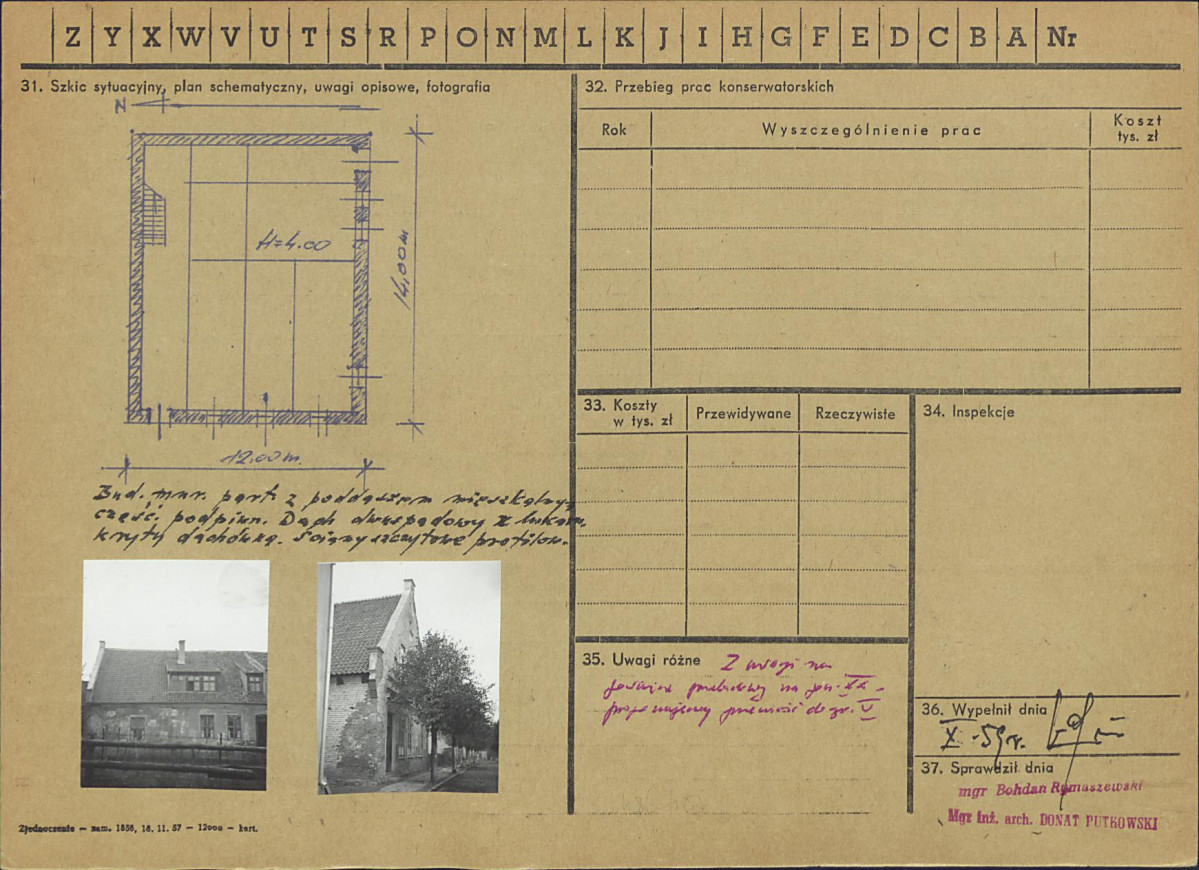 Z Y X W V U T S R P O N M L K J I H G F E D C B A Nr
31. Szkic sytuacyjny, plan schematyczny, uwagi opisowe, fotografia
N
H=4.00
14,00 m
12.00 m.
Bud. mur. part. z poddaszem mieszkalnym
część. podpiwn. Dach dwuspadowy z
kryty dachówką. Ściany szczytowe profilow.
Zjednoczenie — zam. 1856, 18. 11. 57 — 12000 — kart.
32. Przebieg prac konserwatorskich
Rok Wyszczególnienie prac Koszt tys. zł
33. Koszty w tys. zł Przewidywane Rzeczywiste
34. Inspekcje
35. Uwagi różne Z uwagi na
przebudowy na pocz. XX
proponujemy przenieść do gr. V
36. Wypełnił dnia
X -59 r.
37. Sprawdził dnia
mgr Bohdan Rymaszewski
Mgr inż. arch. DONAT PUTKOWSKI